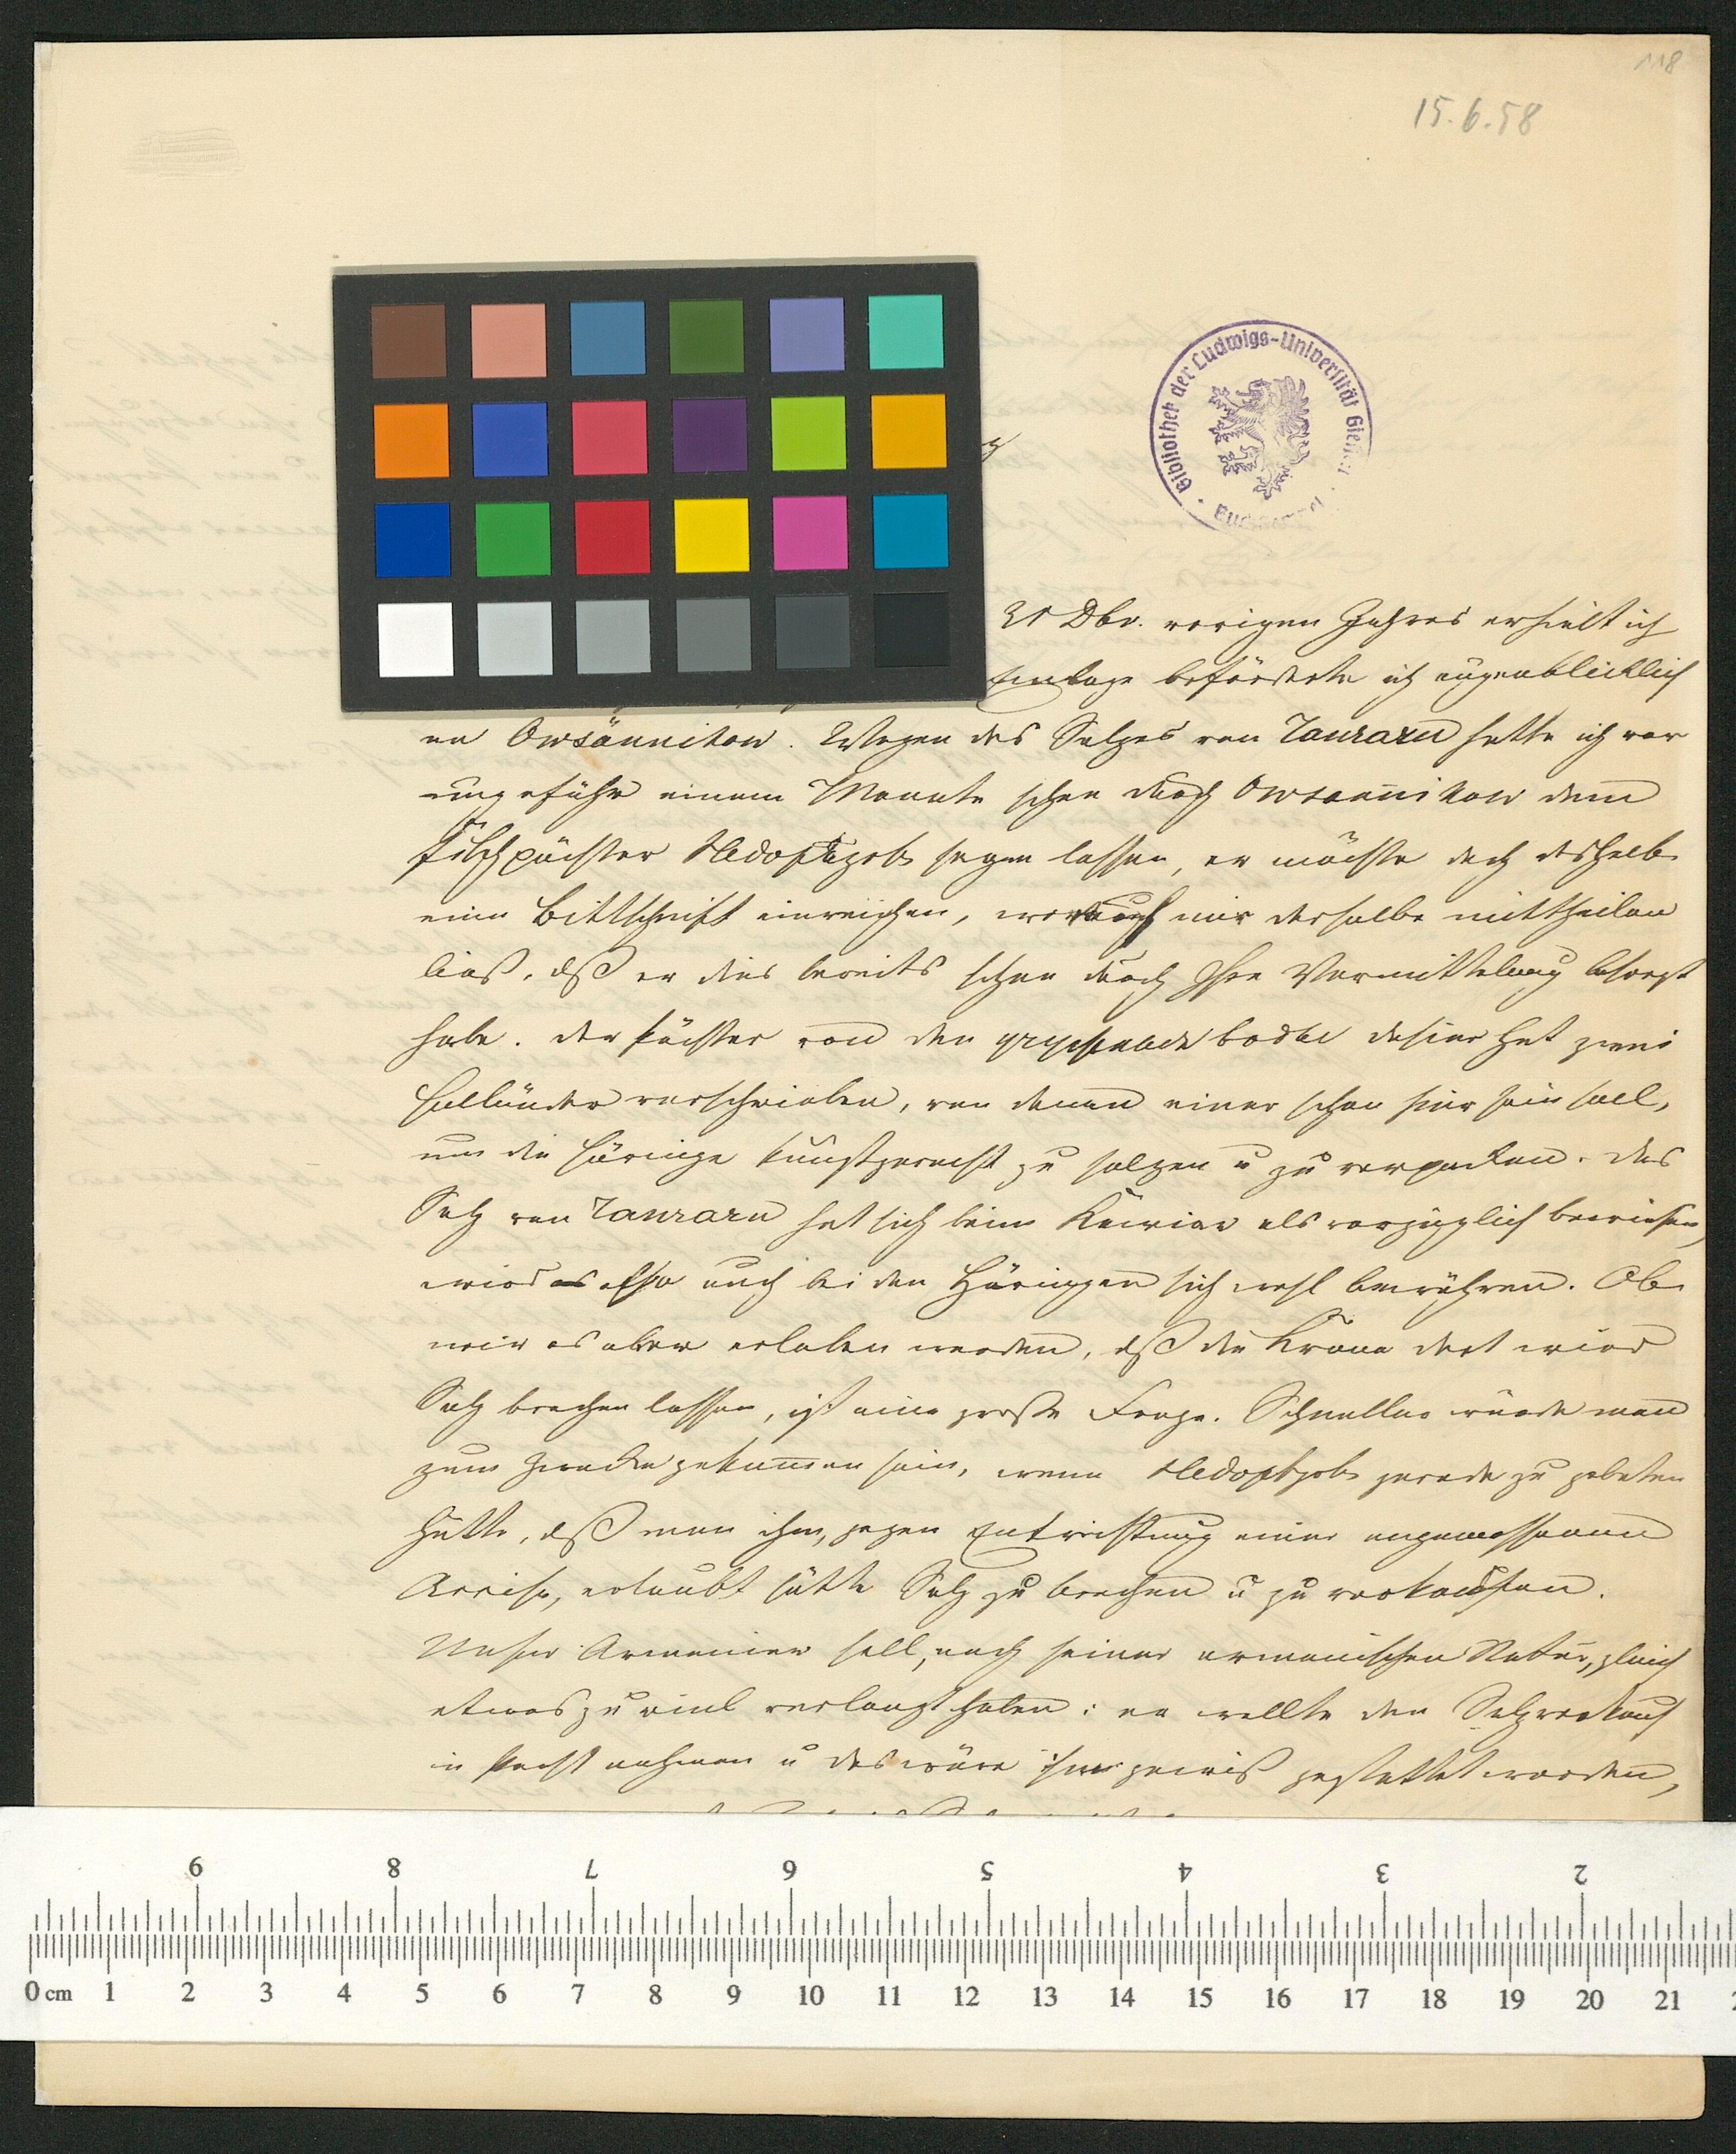 118
15.6.58
Bibliothek der Ludwigs-Universität Gießen
31 Dbr. vorigen Jahres erhielt ich
Einlage beförderte ich augenblicklich
an Owsännikow. Wegen des Salzes von hatte ich vor
ungefähr einem Monate schon durch Owsannikow dem
Fischpächter sagen lassen, er möchte doch deshalb
eine Bittschrift einreichen, worauf mir derselbe mittheilen
ließ, dß er dies bereits schon durch Ihre Vermittelung besorgt
habe. Der Pächter von den hat zwei
Holländer verschrieben, von denen einer schon hier sein soll,
um die Häringe kunstgerecht zu salzen u zu verpacken. Das
Salz von hat sich beim Kawiar als vorzüglich bewiesen,
wird es also auch bei den Häringen sich wohl bewähren. Ob
wir es aber erleben werden, dß die Krone dort wird
Salz brechen lassen, ist eine große Frage. Schneller würde man
zum Zwecke gekommen sein, wenn gerade zu gebeten
hätte, dß man ihm, gegen Entrichtung einer angemessenen
Accise, erlaubt hätte Salz zu brechen u zu verkaufen.
Unser Armenier soll, nach seiner armenischen Natur, gleich
etwas zu viel verlangt haben: er wollte den Salzverkauf
in Pacht nehmen u das wäre ihm gewiß gestattet worden,
9 8 7 6 5 4 3 2
0 cm 1 2 3 4 5 6 7 8 9 10 11 12 13 14 15 16 17 18 19 20 21